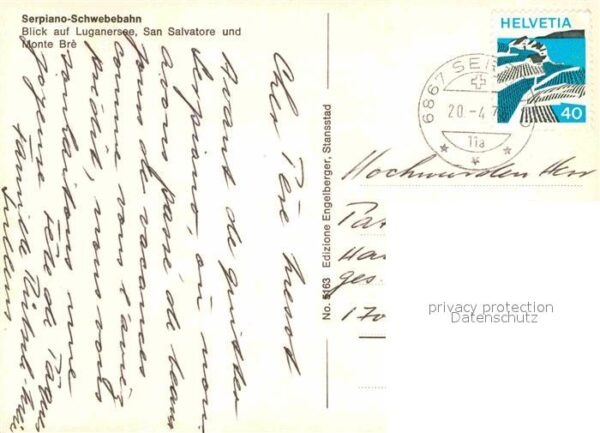 Serpiano-Schwebebahn
Blick auf Luganersee, San Salvatore und
Monte Brè
HELVETIA
40
6867 SER
20.-4.7
11a
No. 5163 Edizione Engelberger, Stansstad
Cher Père
Avant de quitter
Serpiano, où nous
avons passé de beaux
jours de vacances
comme vous l'aviez
prédit, nous vous
souhaitons une
joyeuse fête de Pâques
famille
Hochwürden Herr
ges.
170
privacy protection
Datenschutz